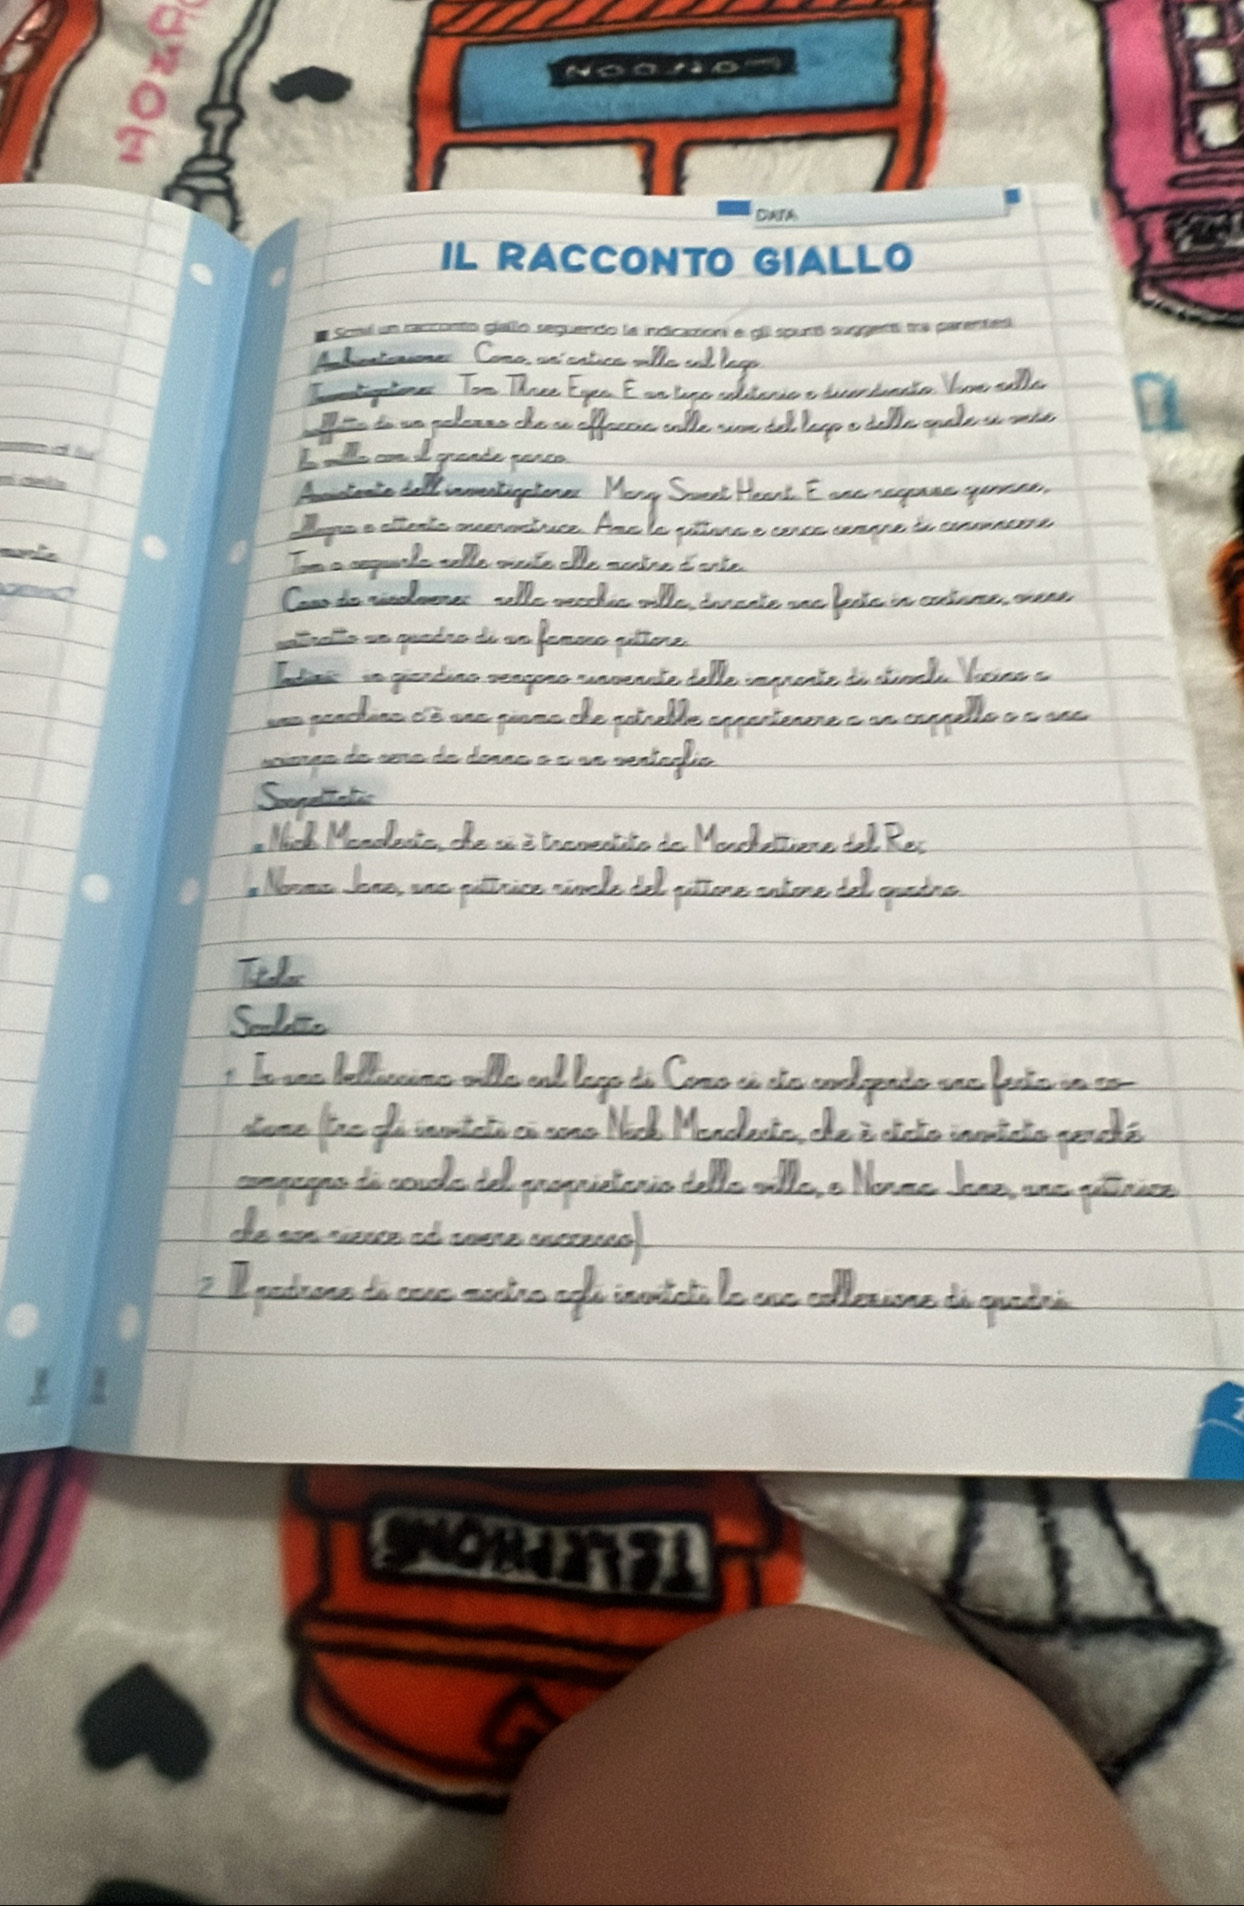 LONDON
DATA
IL RACCONTO GIALLO
Scrivi un racconto giallo seguendo le indicazioni e gli spunti suggeriti tra parentesi.
Ambientazione: Como, un'antica villa sul lago.
Investigatore: Tom Three Eyes. È un tipo solitario e disordinato. Vive nella
soffitta di un palazzo che si affaccia sulle rive del lago e dalla quale si vede
la villa con il grande parco.
Assistente dell'investigatore: Mary Sweet Heart. È una ragazza giovane,
allegra e attenta osservatrice. Ama la pittura e cerca sempre di convincere
Tom a seguirla nelle visite alle mostre d'arte.
Caso da risolvere: nella vecchia villa, durante una festa in costume, viene
sottratto un quadro di un famoso pittore.
Indizi: in giardino vengono rinvenute delle impronte di stivali. Vicino a
una panchina c'è una piuma che potrebbe appartenere a un cappello o a una
sciarpa da sera da donna o a un ventaglio.
Sospettati:
Nick Manolesta, che si è travestito da Moschettiere del Re;
Norma Jane, una pittrice rivale del pittore autore del quadro.
Titolo:
Scaletta
1 In una bellissima villa sul lago di Como si sta svolgendo una festa in co-
stume (tra gli invitati ci sono Nick Manolesta, che è stato invitato perché
compagno di scuola del proprietario della villa, e Norma Jane, una pittrice
che non riesce ad avere successo).
2 Il padrone di casa mostra agli invitati la sua collezione di quadri.
TELEPHONE